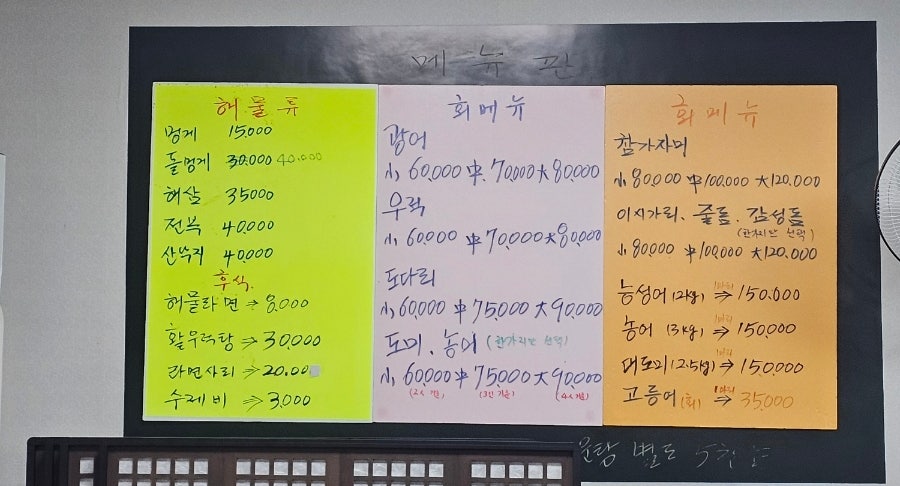 메뉴판
해물류
멍게 15.000
돌멍게 30.000 40.000
해삼 35000
전복 40.000
산낙지 40.000
후식.
해물라면 ⇒ 8.000
활우럭탕 ⇒ 30.000
라면사리 ⇒ 20.00
수제비 ⇒ 3.000
회메뉴
광어
小 60.000 中 70.000 大 80.000
우럭
小 60.000 中 70.000 大 80.000
도다리
小 60.000 中 75.000 大 90.000
도미. 농어 (한가지만 선택)
小 60.000 中 75.000 大 90.000
(2人 기준) (3인 기준) (4人 기준)
회메뉴
참가자미
小 80.000 中 100.000 大 120.000
이시가리. 줄돔. 감성돔
(한가지만 선택)
小 80.000 中 100.000 大 120.000
능성어 (2kg) 1마리 ⇒ 150.000
농어 (3kg) 1마리 ⇒ 150.000
대도미 (2.5kg) 1마리 ⇒ 150.000
고등어 (회) 1마리 ⇒ 35.000
별도 5천